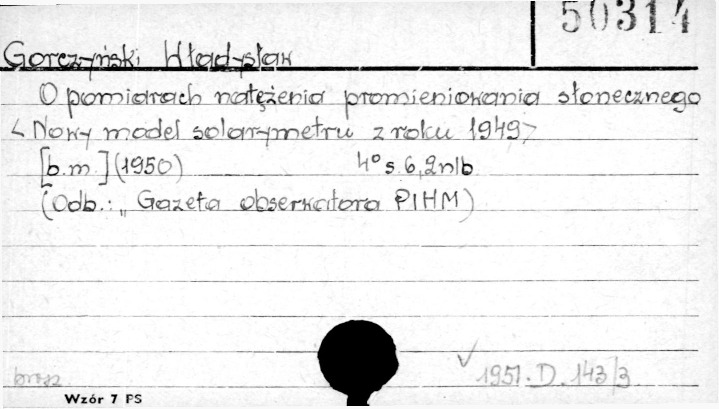 50314
Gorczyński Władysław
O pomiarach natężenia promieniowania słonecznego
<Nowy model solarymetru z roku 1949>
[b.m.] (1950) 4° s. 6, 2nlb
(Odb.: „Gazeta obserwatora PIHM)
brosz.
✓ 1951. D. 143/3
Wzór 7 PS